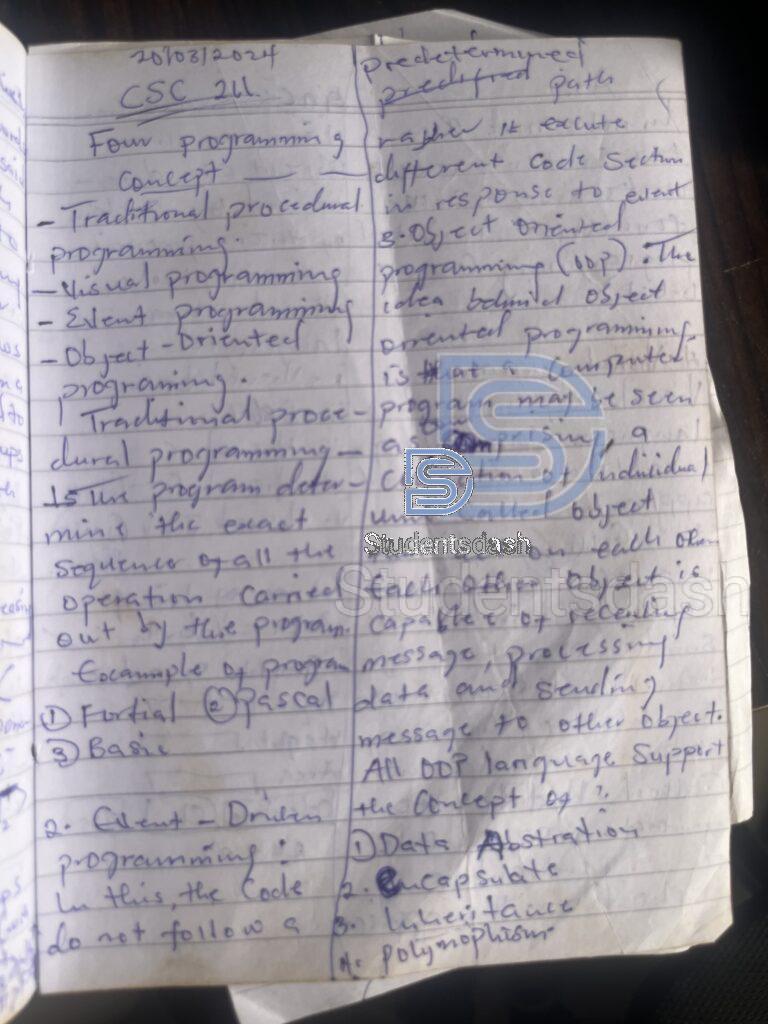 20/03/2024
CSC 211
Four programming
Concept
- Traditional procedural
programming.
- Visual programming
- Event programming
- Object - Oriented
programing.
1 Traditional proce-
dural programming -
Is The program deter-
mine the exact
sequence of all the
operation carried
out by the program.
Example of program
① Fortial ② pascal
③ Basic
2. Event - Driven
programming :
In this, the Code
do not follow a
predetermined
predifred path
rather it excute
different Code Section
in response to event
3. Object oriented
programming (OOP) : The
idea behind Object
oriented programming
is that a Computer
program may be seen
as a
of individual
called object
on each other
Each other Object is
capable of receiving
message, processing
data and sending
message to other object.
All OOP language Support
the Concept of :
① Data Abstration
2. encapsulate
3. Inheritance
4. polymophism
Studentsdash
Studentsdash